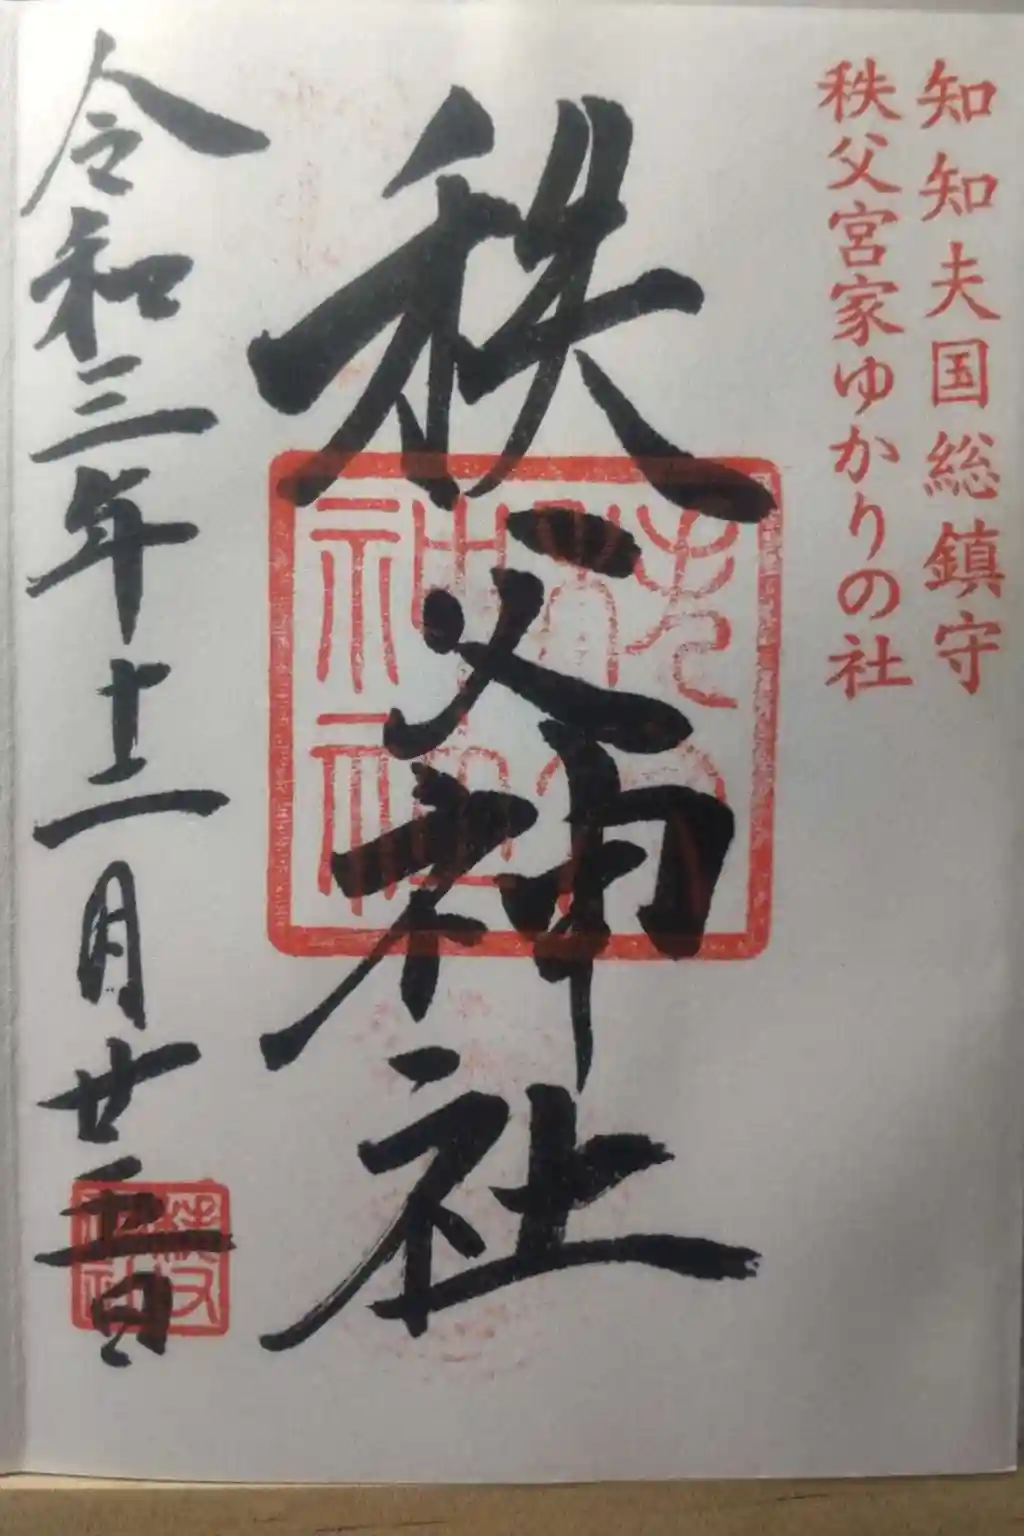 知知夫国総鎮守
秩父宮家ゆかりの社
秩父神社
令和三年十二月廿五日
秩父
神社